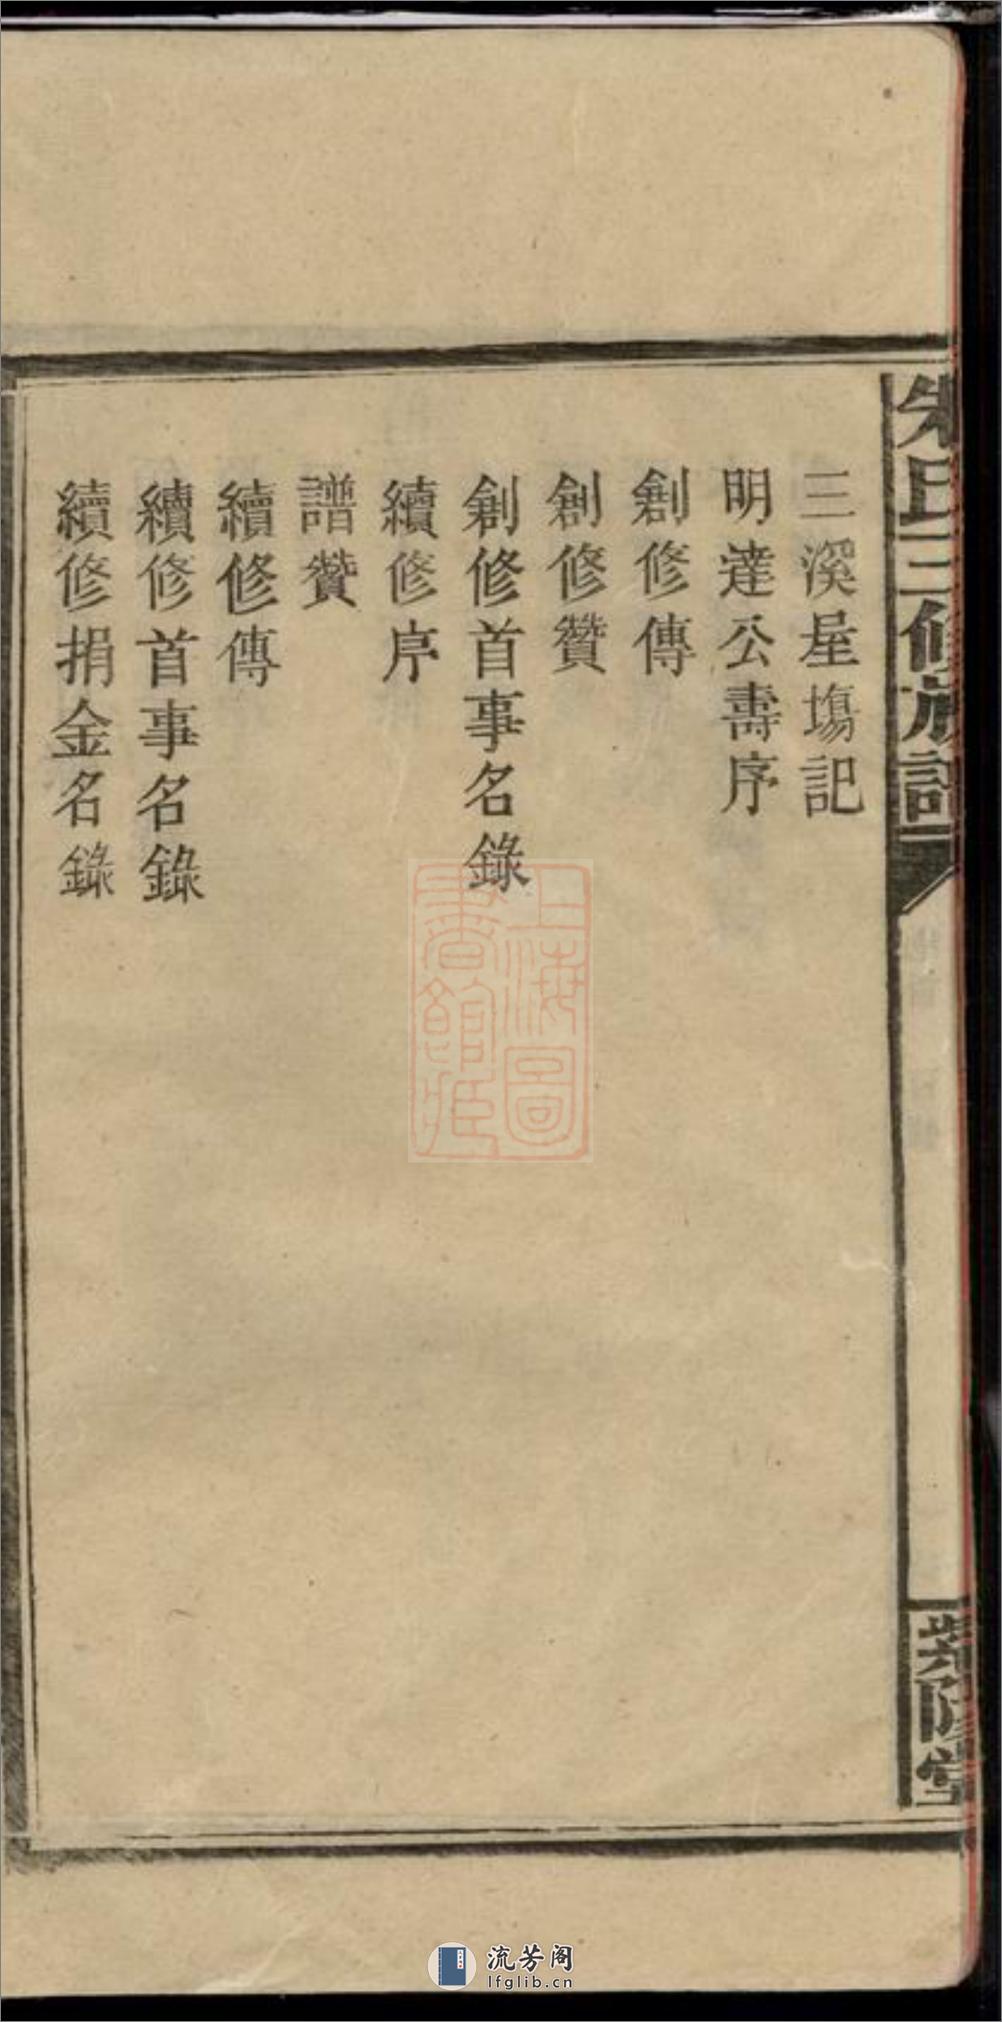 朱氏三修族譜
三溪星塲記
明達公壽序
創修傳
創修贊
創修首事名錄
續修序
譜贊
續修傳
續修首事名錄
續修捐金名錄
紫陽堂
上海圖
書館藏
流芳阁
lfglib.cn